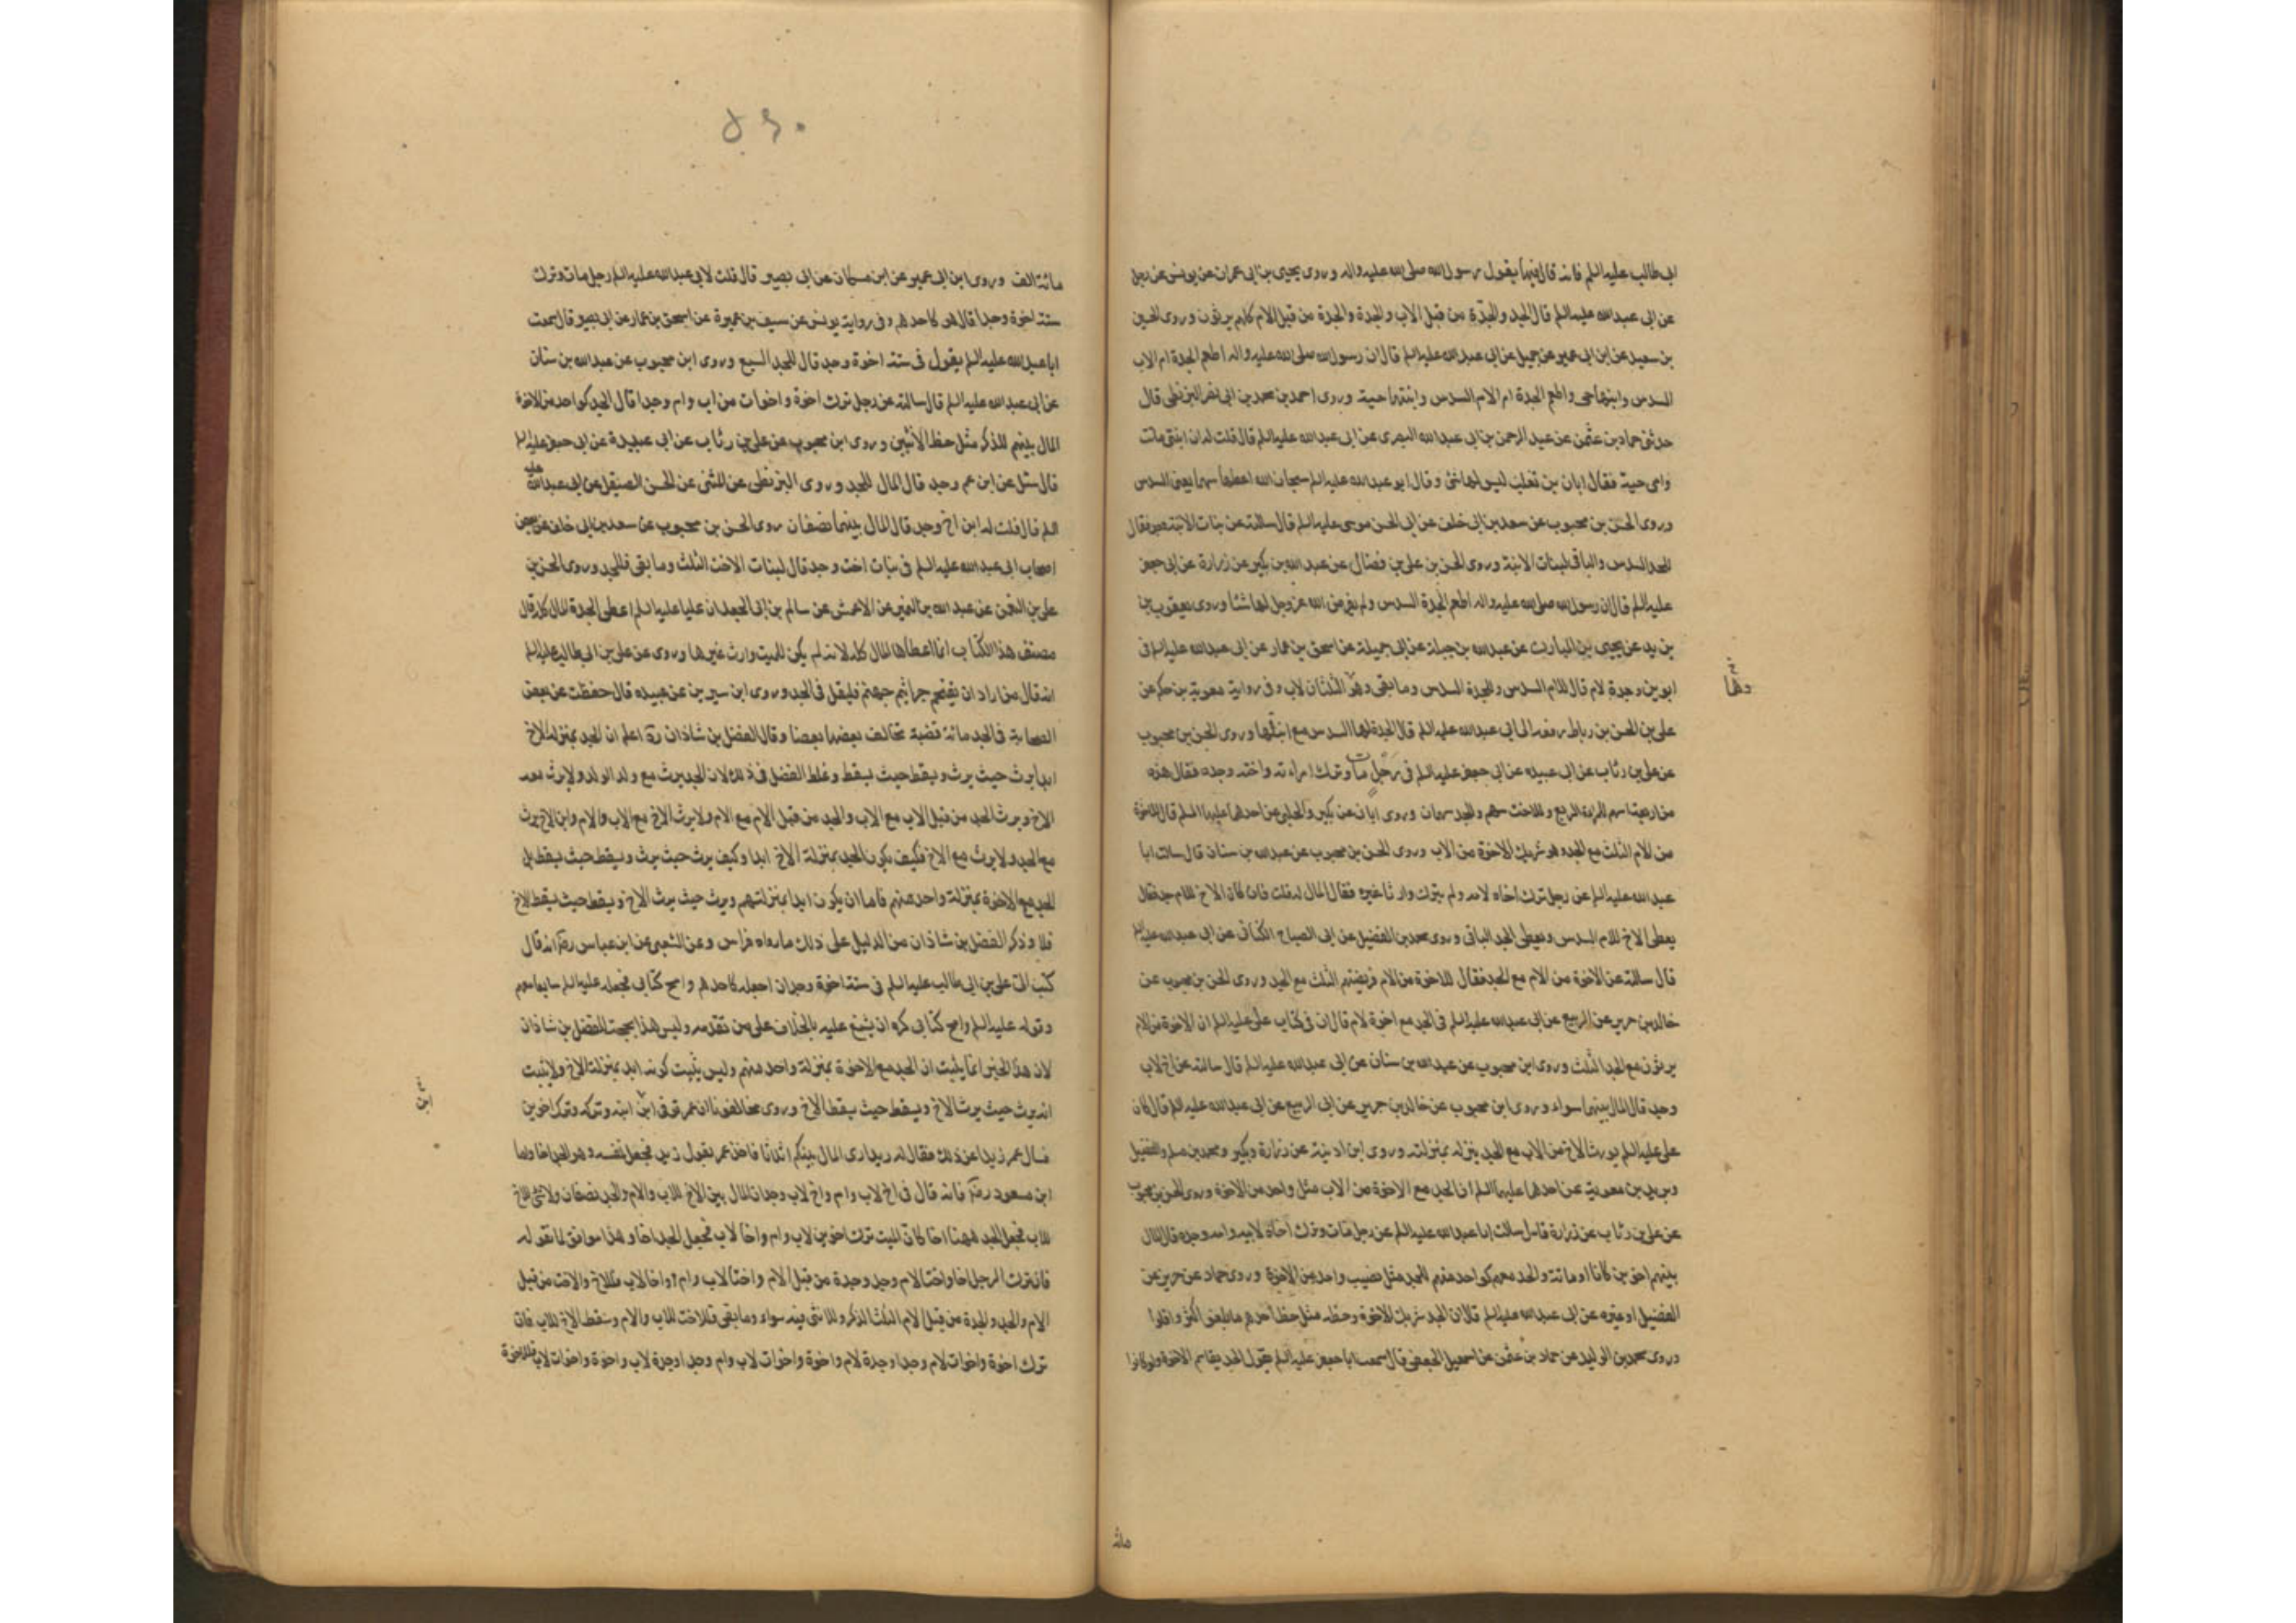 ابى طالب عليه السلم فانه قال فيهما بقول رسول الله صلى الله عليه واله وروى يحيى بن ابى عمران عن يونس عن رجل
عن ابى عبد الله عليه السلم قال الجد والجدة من قبل الاب والجدة والجدة من قبل الام كلهم يرثون وروى الحسين
بن سعيد عن ابن ابى عمير عن جميل عن ابى عبد الله عليه السلم قال ان رسول الله صلى الله عليه واله اطعم الجدة ام الاب
السدس وابنها حى واطعم الجدة ام الام السدس وابنتها حية وروى احمد بن محمد بن ابى نصر البزنطى قال
حدثنى حماد بن عثمن عن عبد الرحمن بن ابى عبد الله البصرى عن ابى عبد الله عليه السلم قال قلت له ان ابنتى ماتت
وامى حية فقال ابان بن تغلب ليس لها شئ وقال ابو عبد الله عليه السلم سبحان الله اعطها سهما يعنى السدس
وروى الحسن بن محبوب عن سعد بن ابى خلف عن ابى الحسن موسى عليه السلم قال سالته عن بنات الابنة وجد فقال
للجد السدس والباقى لبنات الابنة وروى الحسن بن على بن فضال عن عبد الله بن بكير عن زرارة عن ابى جعفر
عليه السلم قال ان رسول الله صلى الله عليه واله اطعم الجدة السدس ولم يفرض الله عز وجل لها شئا وروى يعقوب بن
يزيد عن يحيى بن المبارك عن عبد الله بن جبلة عن ابى جميلة عن اسحق بن عمار عن ابى عبد الله عليه السلم فى
ابوين وجدة لام قال للام السدس وللجدة السدس وما بقى وهو الثلثان لاب وفى رواية معوية بن حكم عن
على بن الحسن بن رباط رفعه الى ابى عبد الله عليه السلم قال الجدة لها السدس مع ابنها وروى الحسن بن محبوب
عن على بن رئاب عن ابى عبيده عن ابى جعفر عليه السلم فى رجل مات وترك امراته واخته وجده فقال هذه
من اربعة اسهم للمراة الربع وللاخت سهم وللجد سهمان وروى ابان عن بكير والحلبى عن احدهما عليهما السلم قال للاخوة
من الام الثلث مع الجد وهو شريك للاخوة من الاب وروى الحسن بن محبوب عن عبد الله بن سنان قال سالت ابا
عبد الله عليه السلم عن رجل ترك اخاه لامه ولم يترك وارثا غيره فقال المال له قلت فان كان الاخ للام جد فقال
يعطى الاخ للام السدس ويعطى الجد الباقى وروى محمد بن الفضيل عن ابى الصباح الكنانى عن ابى عبد الله عليه السلم
قال سالته عن الاخوة من الام مع الجد فقال للاخوة من الام فريضتهم الثلث مع الجد وروى الحسن بن محبوب عن
خالد بن جرير عن الربيع عن ابى عبد الله عليه السلم فى الجد مع اخوة لام قال ان فى كتاب على عليه السلم ان الاخوة من الام
يرثون مع الجد الثلث وروى ابن محبوب عن عبد الله بن سنان عن ابى عبد الله عليه السلم قال سالته عن اخ لاب
وجد قال المال بينهما سواء وروى ابن محبوب عن خالد بن جرير عن ابى الربيع عن ابى عبد الله عليه السلم قال كان
على عليه السلم يورث الاخ من الاب مع الجد ينزله بمنزلته وروى ابن اذينة عن زرارة وبكير ومحمد بن مسلم والفضيل
وبريد بن معوية عن احدهما عليهما السلم ان الجد مع الاخوة من الاب مثل واحد من الاخوة وروى الحسن بن محبوب
عن على بن رئاب عن زرارة قال سالت ابا عبد الله عليه السلم عن رجل مات وترك اخاه لابيه وامه وجده قال المال
بينهم اخوين كانا او مائة والجد معهم كواحد منهم للجد مثل نصيب واحد من الاخوة وروى حماد عن حريز عن
الفضيل او غيره عن ابى عبد الله عليه السلم قال ان الجد شريك للاخوة وحظه مثل حظ احدهم ما بلغوا كثروا او قلوا
وروى محمد بن الوليد عن حماد بن عثمن عن اسمعيل الجعفى قال سمعت ابا جعفر عليه السلم يقول الجد يقاسم الاخوة ولو كانوا
مائة
٥٤٠
مائة الف وروى ابن ابى عمير عن ابن مسكان عن ابى بصير قال قلت لابى عبد الله عليه السلم رجل مات وترك
ستة اخوة وجدا قال هو كاحدهم وفى رواية يونس عن سيف بن عميرة عن اسحق بن عمار عن ابى بصير قال سمعت
ابا عبد الله عليه السلم يقول فى ستة اخوة وجد قال للجد السبع وروى ابن محبوب عن عبد الله بن سنان
عن ابى عبد الله عليه السلم قال سالته عن رجل ترك اخوة واخوات من اب وام وجدا قال الجد كواحد من الاخوة
المال بينهم للذكر مثل حظ الانثيين وروى ابن محبوب عن على بن رئاب عن ابى عبيدة عن ابى جعفر عليه السلم
قال سئل عن ابن عم وجد قال المال للجد وروى البزنطى عن المثنى عن الحسن الصيقل عن ابى عبد الله عليه
السلم قال قلت له ابن اخ وجد قال المال بينهما نصفان روى الحسن بن محبوب عن سعد بن ابى خلف عن بعض
اصحاب ابى عبد الله عليه السلم فى بنات اخت وجد قال لبنات الاخت الثلث وما بقى فللجد وروى الحسن بن
على بن النعمن عن عبد الله بن نمير عن الاعمش عن سالم بن ابى الجعد ان عليا عليه السلم اعطى الجدة المال كله قال
مصنف هذا الكتاب انما اعطاها المال كله لانه لم يكن للميت وارث غيرها وروى عن على بن ابى طالب عليه السلم
انه قال من اراد ان يتقحم جراثيم جهنم فليقل فى الجد وروى ابن سيرين عن عبيده قال حفظت عن بعض
الصحابة فى الجد مائة قضية يخالف بعضها بعضا وقال الفضل بن شاذان ره اعلم ان الجد بمنزلة الاخ
ابدا يرث حيث يرث ويسقط حيث يسقط وغلط الفضل فى ذلك لان الجد يرث مع ولد الولد ولا يرث معه
الاخ ويرث الجد من قبل الاب مع الاب والجد من قبل الام مع الام ولا يرث الاخ مع الاب والام وابن الاخ يرث
مع الجد ولا يرث مع الاخ فكيف يكون الجد بمنزلة الاخ ابدا وكيف يرث حيث يرث ويسقط حيث يسقط بل
الجد مع الاخوة بمنزلة واحد منهم فاما ان يكون ابدا بمنزلتهم ويرث حيث يرث الاخ ويسقط حيث يسقط الاخ
فلا وذكر الفضل بن شاذان من الدليل على ذلك ما رواه فراس وعن الشعبى عن ابن عباس رضه انه قال
كتب الى على بن ابى طالب عليه السلم فى ستة اخوة وجد ان اجعله كاحدهم وامح كتابى فجعله عليه السلم سابعا معهم
وقوله عليه السلم وامح كتابى كره ان يشنع عليه بالخلاف على من تقدمه وليس هذا بحجة للفضل بن شاذان
لان هذا الخبر انما يثبت ان الجد مع الاخوة بمنزلة واحد منهم وليس يثبت كونه ابدا بمنزلة الاخ ولا يثبت
انه يرث حيث يرث الاخ ويسقط حيث يسقط الاخ وروى مخالفونا ان عمر توفى ابن ابنه وتركه وترك اخوين
فسال عمر زيدا عن ذلك فقال له زيد ارى المال بينكم اثلاثا فاخذ عمر بقول زيد فجعل نفسه وهو الجد اخا واما
ابن مسعود رضه فانه قال فى اخ لاب وام واخ لاب وجد ان المال بين الاخ للاب والام والجد نصفان ولا شئ للاخ
للاب فجعل الجد ههنا اخا كان الميت ترك اخوين لاب وام واخا لاب فجعل الجد اخا وهذا موافق لما نقوله
فان ترك الرجل اخا واختا لام وجد وجدة من قبل الام واختا لاب وام واخا لاب فللاخ والاخت من قبل
الام والجد والجدة من قبل الام الثلث الذكر والانثى فيه سواء وما بقى فللاخت للاب والام وسقط الاخ للاب فان
ترك اخوة واخوات لام وجدا وجدة لام واخوة واخوات لاب وام وجدا وجدة لاب واخوة واخوات لاب فللاخوة
ابن